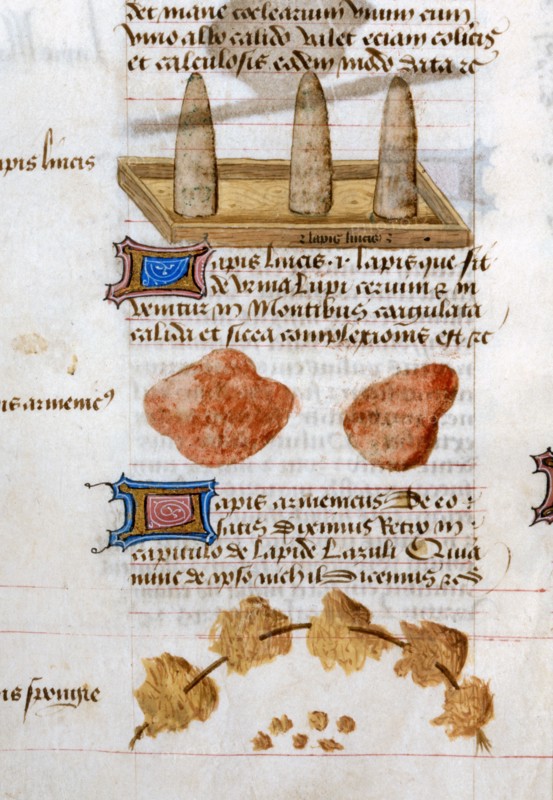 det mane coclearium vnum cum
vino albo calido valet eciam colicis
et calculosis eodem modo data ꝛc
apis lincis
lapis lincis
Lapis lincis .i. lapis que fit
de vrina lupi ceruini ⁊ in
venitur in Montibus coagulata
calida et sicca complexionis est ꝛc
is armenicꝰ
Lapis armenicus De eo
satis Diximus Retro in
capitulo de lapide Lazuli Quia
nunc de ipso nichil Dicemus ꝛc
is spongie